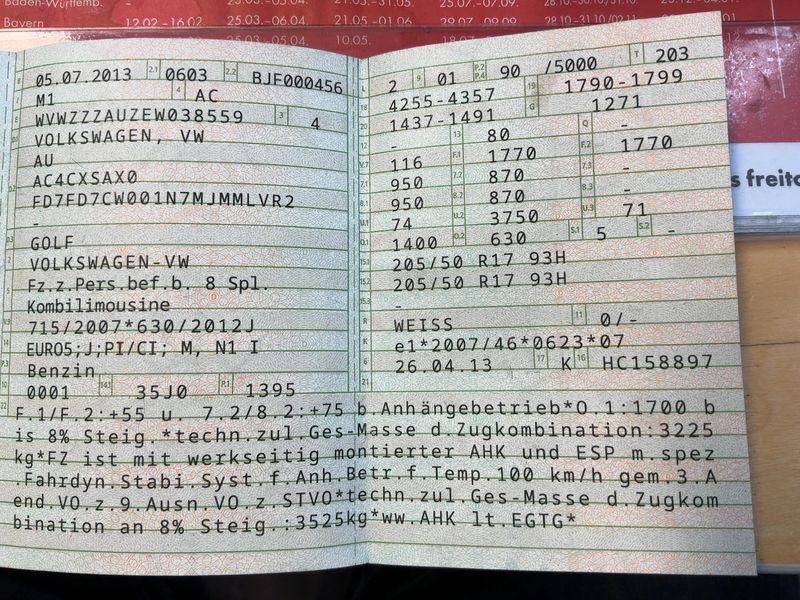 Baden-Württemb.
25.03.-05.04.
21.05.-31.05.
25.07.-07.09.
Bayern
12.02.-16.02.
25.03.-06.04.
21.05.-01.06.
29.07.-09.09.
28.10.-30.10./31.10.
28.10-31.10/02.11
25.03.-05.04.
10.05.
s freita
B 05.07.2013 2.1 0603 2.2 BJF000456
J M1 4 AC
E WVWZZZAUZEW038559 3 4
VOLKSWAGEN, VW
AU
D.2 AC4CXSAX0
FD7FD7CW001N7MJMMLVR2
-
D.3 GOLF
2 VOLKSWAGEN-VW
Fz.z.Pers.bef.b. 8 Spl.
Kombilimousine
V.9 715/2007*630/2012J
14 EURO5;J;PI/CI; M, N1 I
P.3 Benzin
10 0001 14.1 35J0 P.1 1395
L 2 9 01 P.2 P.4 90 /5000 T 203
18 4255-4357 19 1790-1799
20 1437-1491 G 1271
12 - 13 80 Q -
V.7 116 F.1 1770 F.2 1770
7.1 950 7.2 870 7.3 -
8.1 950 8.2 870 8.3 -
U.1 74 U.2 3750 U.3 71
O.1 1400 O.2 630 S.1 5 S.2 -
15.1 205/50 R17 93H
15.2 205/50 R17 93H
15.3 -
R WEISS 11 0/-
K e1*2007/46*0623*07
6 26.04.13 17 K 16 HC158897
21
22 F.1/F.2:+55 u. 7.2/8.2:+75 b.Anhängebetrieb*O.1:1700 b
is 8% Steig.*techn.zul.Ges-Masse d.Zugkombination:3225
kg*FZ ist mit werkseitig montierter AHK und ESP m.spez
.Fahrdyn.Stabi.Syst.f.Anh.Betr.f.Temp.100 km/h gem.3.A
end.VO.z.9.Ausn.VO.z.STVO*techn.zul.Ges-Masse d.Zugkom
bination an 8% Steig.:3525kg*ww.AHK lt.EGTG*